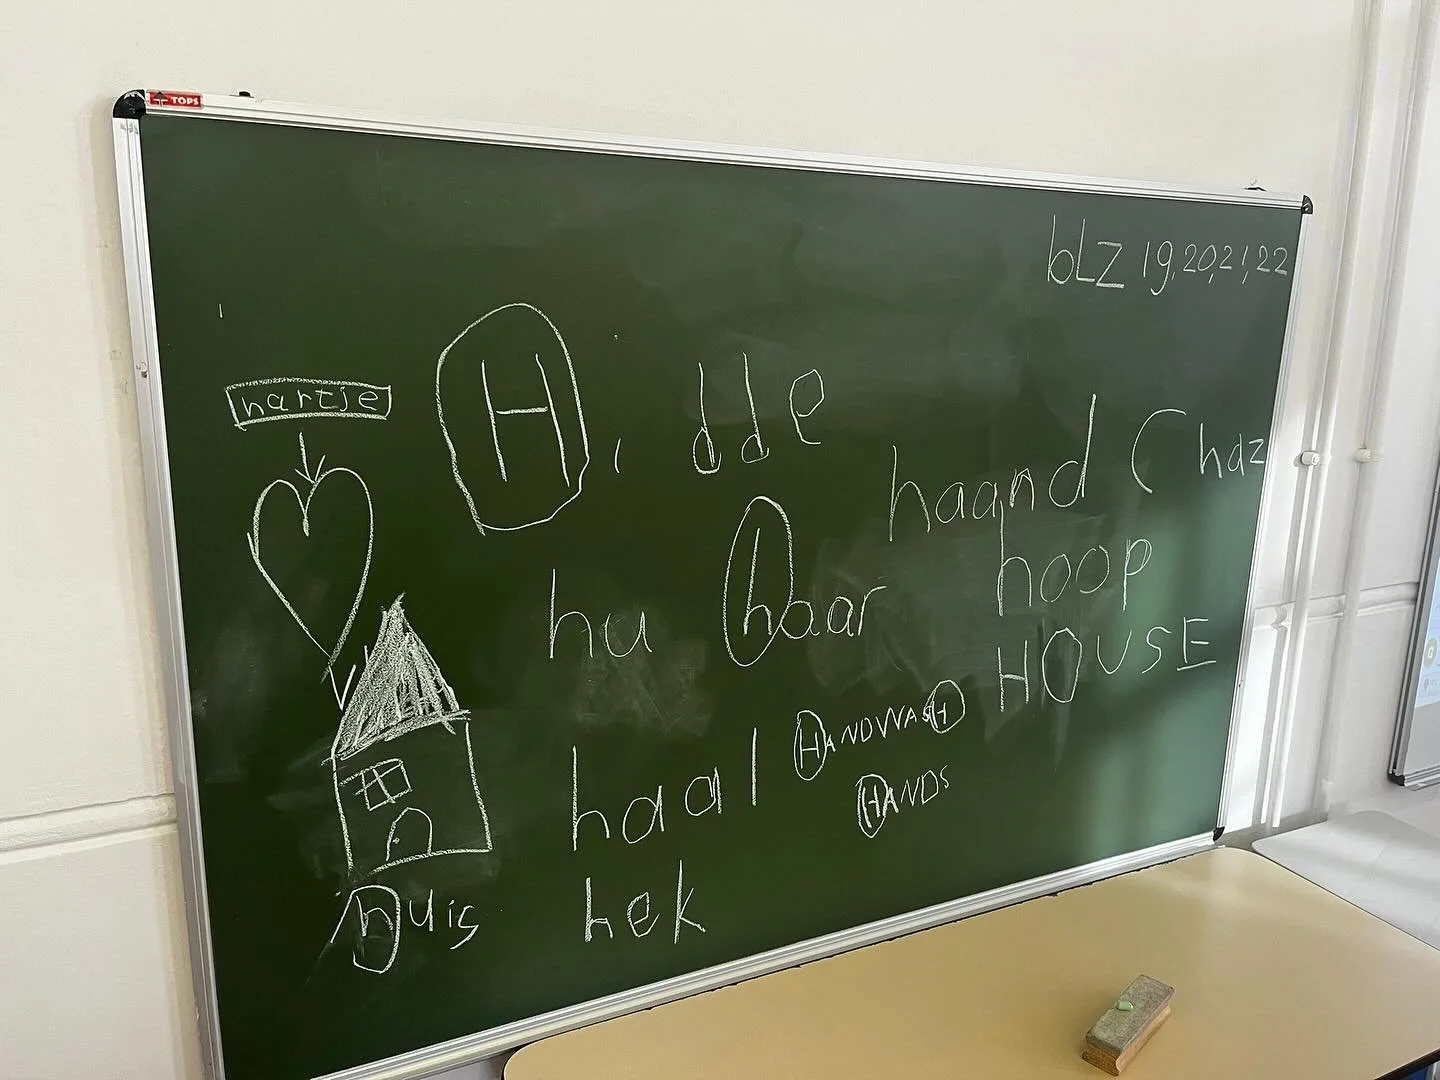 TOPS
blz 19,20,21,22
hartje
H i dde
haand ( haz
hu haar hoop
HOUSE
haal HANDWASH
HANDS
huis hek